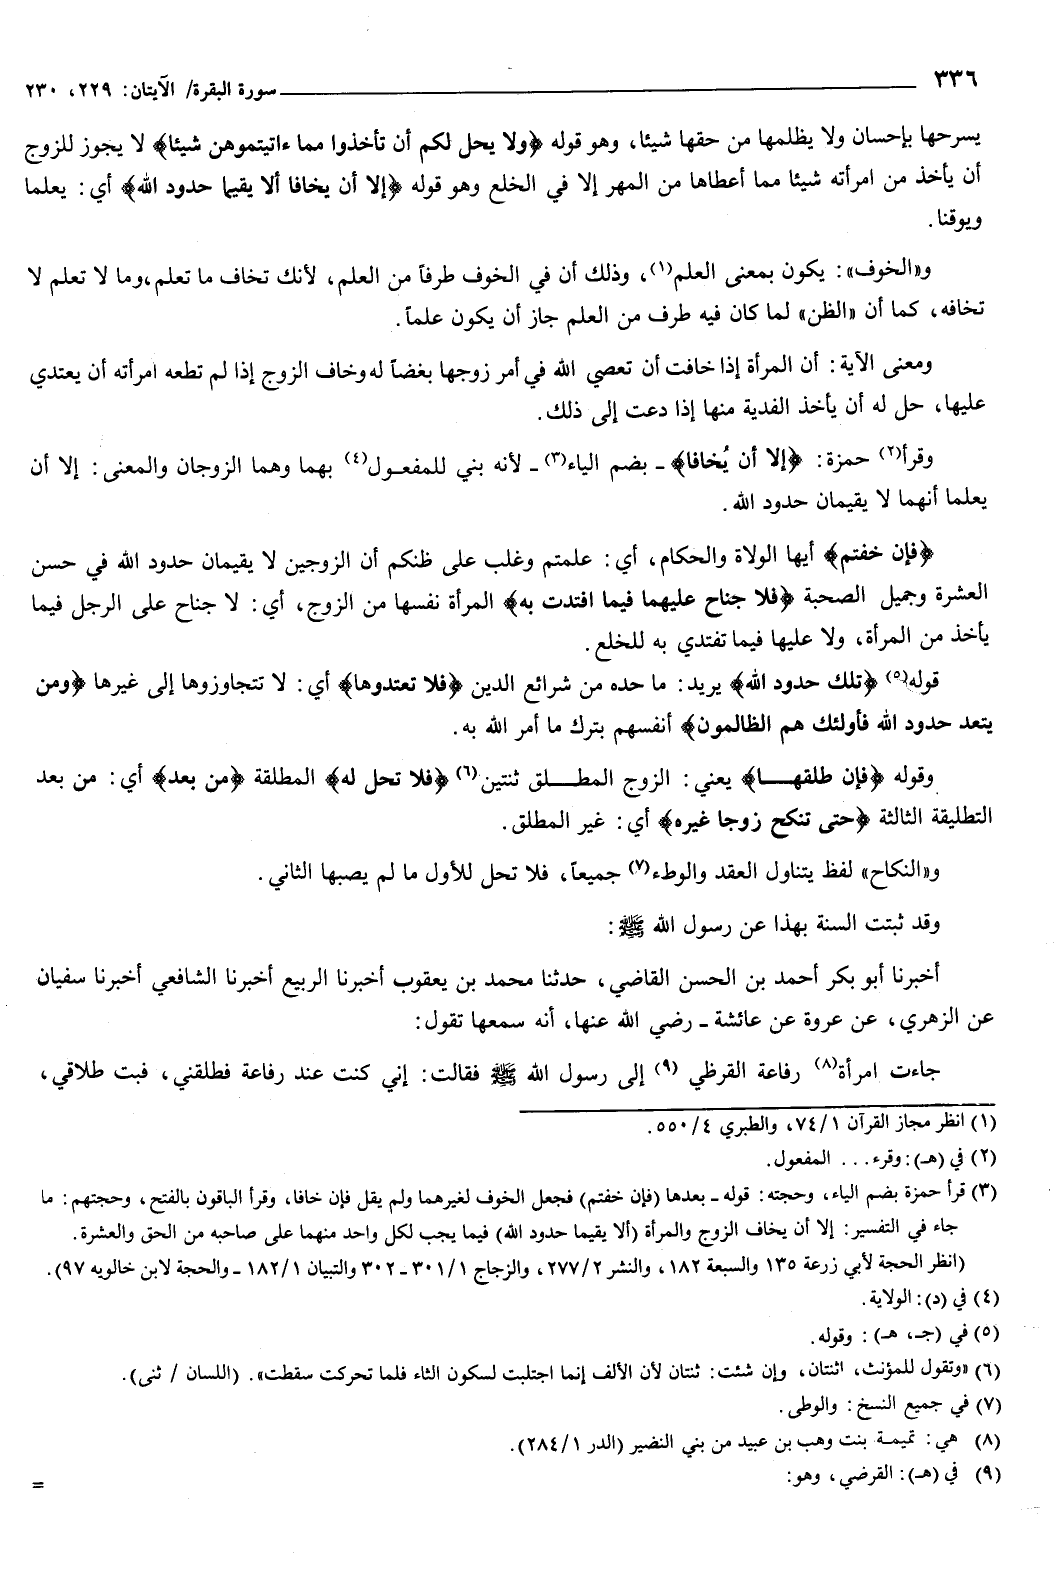 ٣٣٦ سورة البقرة/ الآيتان: ٢٢٩، ٢٣٠
يسرحها بإحسان ولا يظلمها من حقها شيئا، وهو قوله ﴿ولا يحل لكم أن تأخذوا مما ءاتيتموهن شيئا﴾ لا يجوز للزوج
أن يأخذ من امرأته شيئا مما أعطاها من المهر إلا في الخلع وهو قوله ﴿إلا أن يخافا ألا يقيما حدود الله﴾ أي: يعلما
ويوقنا.
و«الخوف»: يكون بمعنى العلم(١)، وذلك أن في الخوف طرفاً من العلم، لأنك تخاف ما تعلم،وما لا تعلم لا
تخافه، كما أن «الظن» لما كان فيه طرف من العلم جاز أن يكون علماً.
ومعنى الآية: أن المرأة إذا خافت أن تعصي الله في أمر زوجها بغضاً له وخاف الزوج إذا لم تطعه امرأته أن يعتدي
عليها، حل له أن يأخذ الفدية منها إذا دعت إلى ذلك.
وقرأ(٢) حمزة: ﴿إلا أن يُخافا﴾ ـ بضم الياء(٣) ـ لأنه بني للمفعول(٤) بهما وهما الزوجان والمعنى: إلا أن
يعلما أنهما لا يقيمان حدود الله.
﴿فإن خفتم﴾ أيها الولاة والحكام، أي: علمتم وغلب على ظنكم أن الزوجين لا يقيمان حدود الله في حسن
العشرة وجميل الصحبة ﴿فلا جناح عليهما فيما افتدت به﴾ المرأة نفسها من الزوج، أي: لا جناح على الرجل فيما
يأخذ من المرأة، ولا عليها فيما تفتدي به للخلع.
قوله(٥) ﴿تلك حدود الله﴾ يريد: ما حده من شرائع الدين ﴿فلا تعتدوها﴾ أي: لا تتجاوزوها إلى غيرها ﴿ومن
يتعد حدود الله فأولئك هم الظالمون﴾ أنفسهم بترك ما أمر الله به.
وقوله ﴿فإن طلقهـــا﴾ يعني: الزوج المطــلق ثنتين(٦) ﴿فلا تحل له﴾ المطلقة ﴿من بعد﴾ أي: من بعد
التطليقة الثالثة ﴿حتى تنكح زوجا غيره﴾ أي: غير المطلق.
و«النكاح» لفظ يتناول العقد والوطء(٧) جميعاً، فلا تحل للأول ما لم يصبها الثاني.
وقد ثبتت السنة بهذا عن رسول الله ﷺ:
أخبرنا أبو بكر أحمد بن الحسن القاضي، حدثنا محمد بن يعقوب أخبرنا الربيع أخبرنا الشافعي أخبرنا سفيان
عن الزهري، عن عروة عن عائشة ـ رضي الله عنها، أنه سمعها تقول:
جاءت امرأة(٨) رفاعة القرظي (٩) إلى رسول الله ﷺ فقالت: إني كنت عند رفاعة فطلقني، فبت طلاقي،
(١) انظر مجاز القرآن ٧٤/١، والطبري ٥٥٠/٤.
(٢) في (هـ): وقرء... المفعول.
(٣) قرأ حمزة بضم الياء، وحجته: قوله ـ بعدها (فإن خفتم) فجعل الخوف لغيرهما ولم يقل فإن خافا، وقرأ الباقون بالفتح، وحجتهم: ما
جاء في التفسير: إلا أن يخاف الزوج والمرأة (ألا يقيما حدود الله) فيما يجب لكل واحد منهما على صاحبه من الحق والعشرة.
(انظر الحجة لأبي زرعة ١٣٥ والسبعة ١٨٢، والنشر ٢٧٧/٢، والزجاج ٣٠١/١ ـ ٣٠٢ والتبيان ١٨٢/١ ـ والحجة لابن خالويه ٩٧).
(٤) في (د): الولاية.
(٥) في (جـ، هـ): وقوله.
(٦) «وتقول للمؤنث، اثنتان، وإن شئت: ثنتان لأن الألف إنما اجتلبت لسكون الثاء فلما تحركت سقطت». (اللسان / ثنى).
(٧) في جميع النسخ: والوطى.
(٨) هي: تميمة بنت وهب بن عبيد من بني النضير (الدر ٢٨٤/١).
(٩) في (هـ): القرضي، وهو:
=